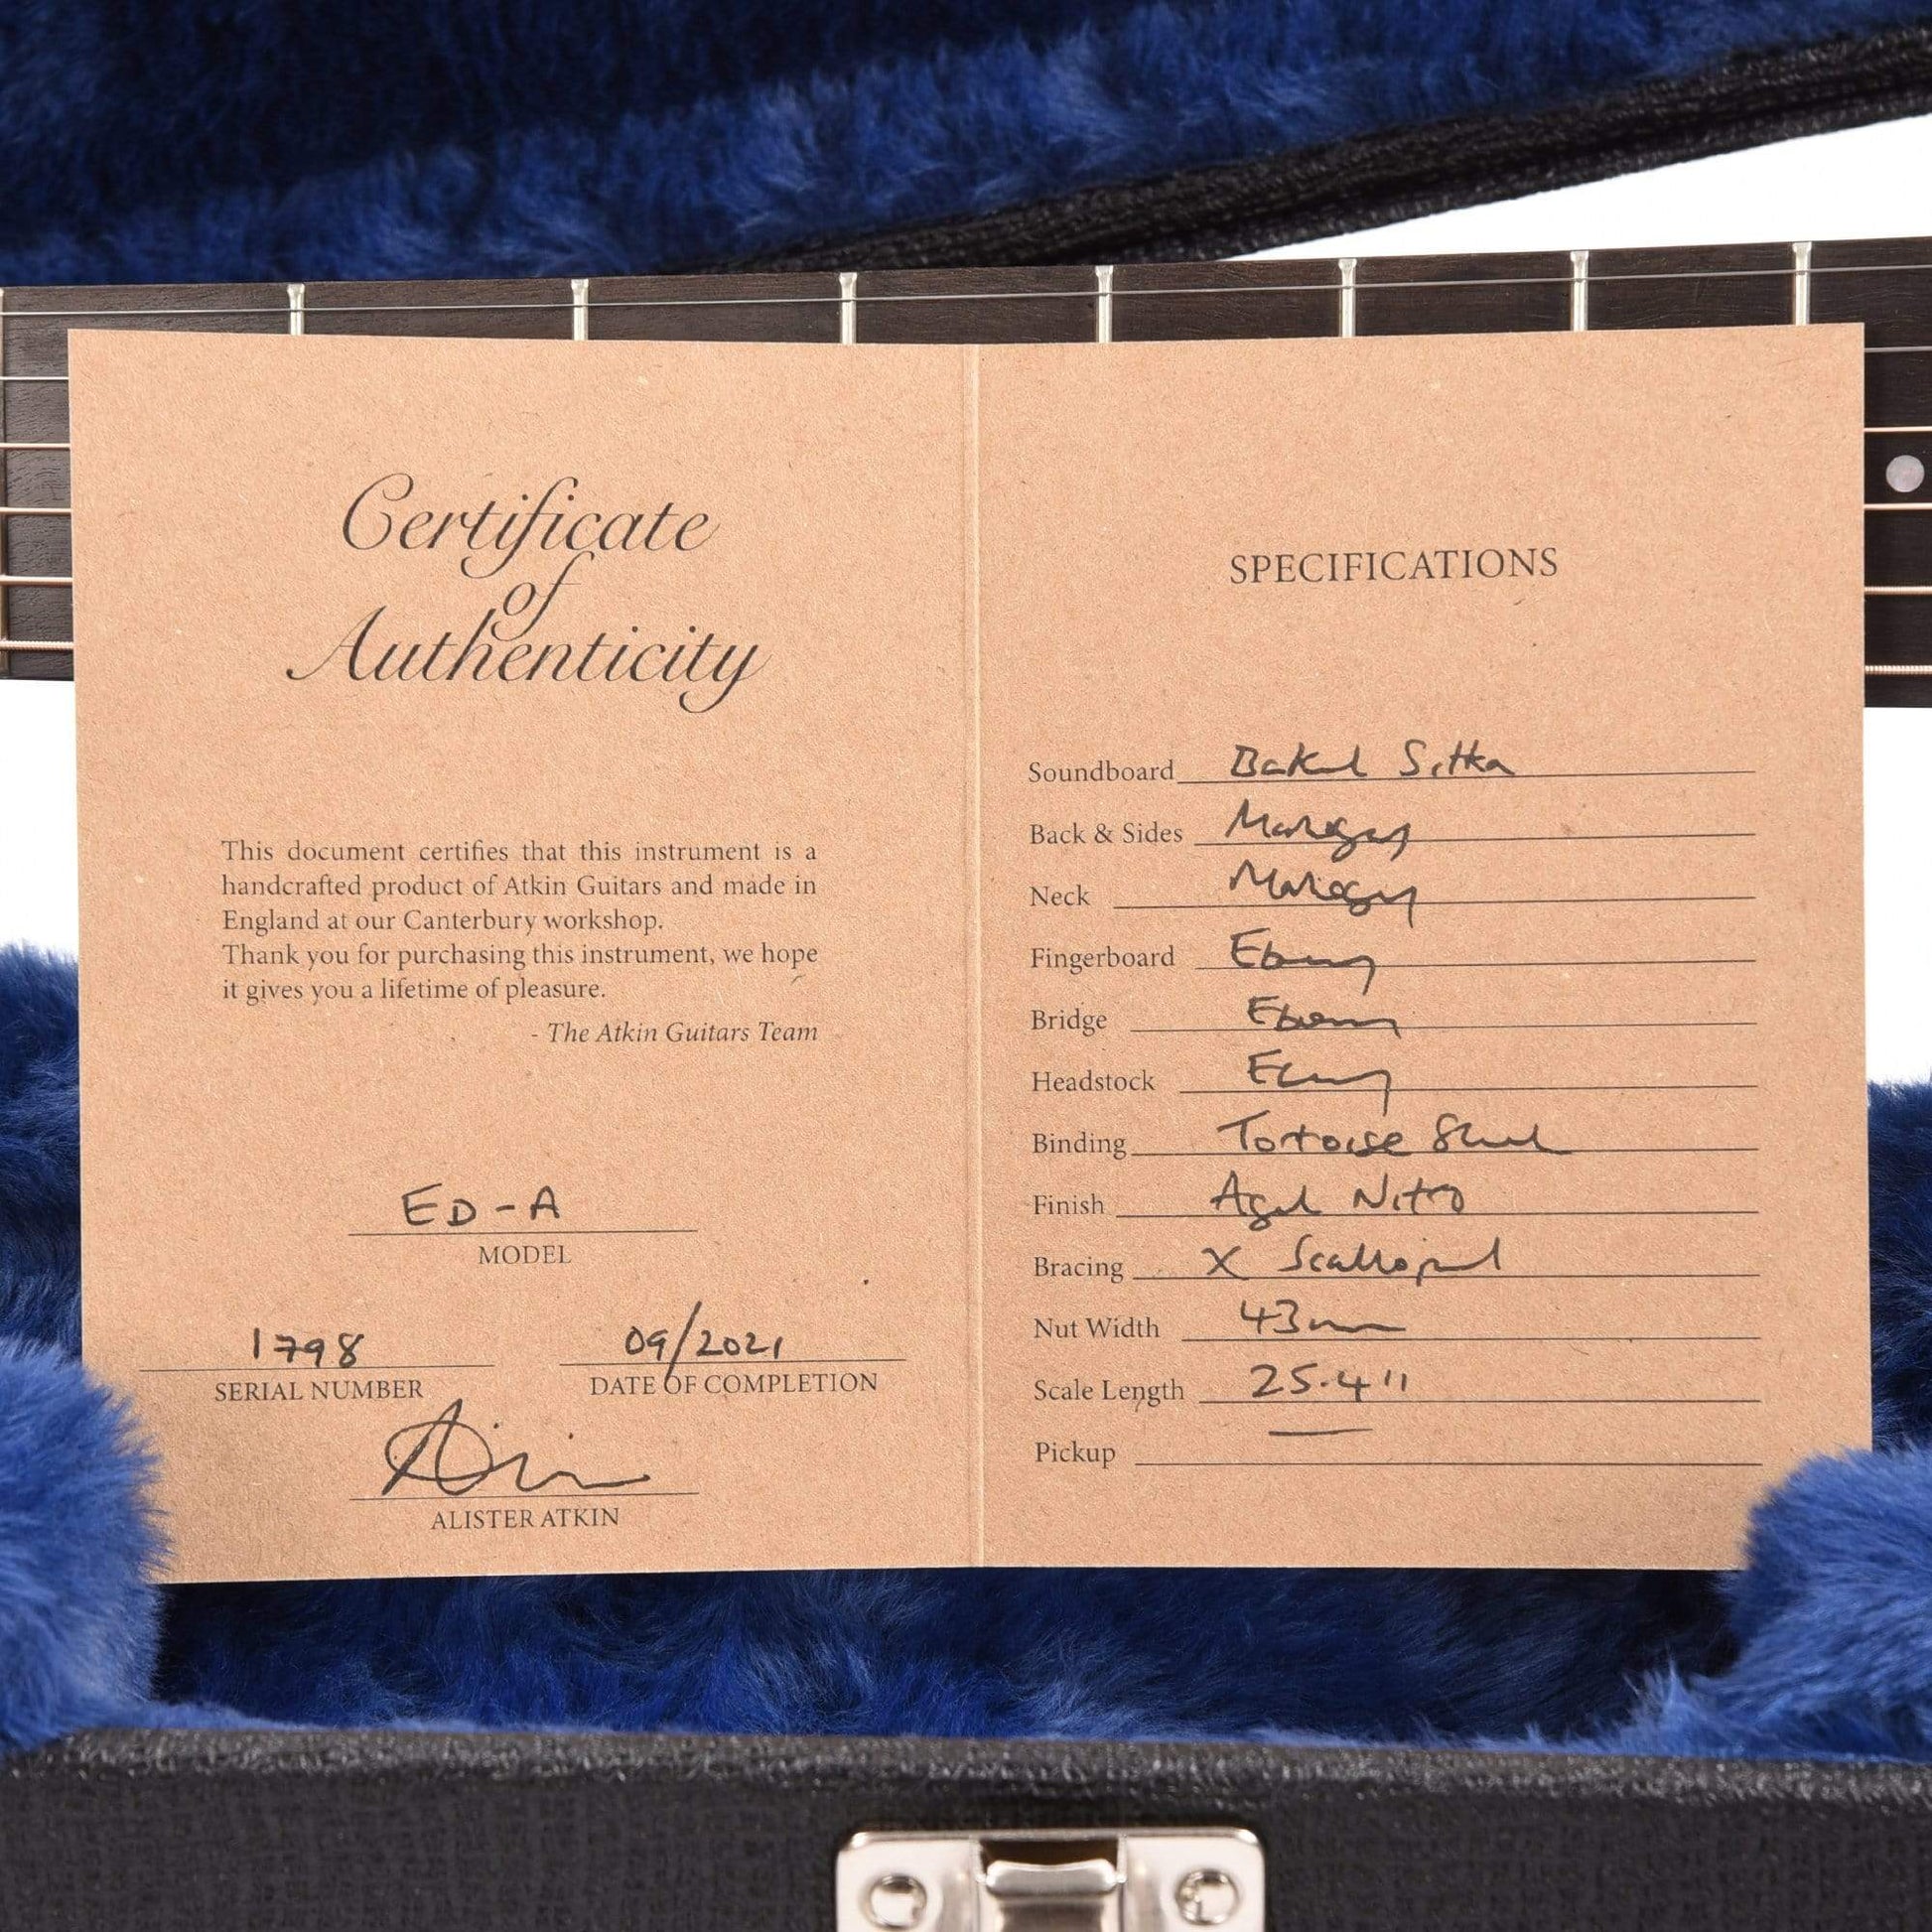 Certificate
of
Authenticity
This document certifies that this instrument is a
handcrafted product of Atkin Guitars and made in
England at our Canterbury workshop.
Thank you for purchasing this instrument, we hope
it gives you a lifetime of pleasure.
- The Atkin Guitars Team
ED-A
MODEL
1798
SERIAL NUMBER
09/2021
DATE OF COMPLETION
ALISTER ATKIN
SPECIFICATIONS
Soundboard Baked Sitka
Back & Sides Mahogany
Neck Mahogany
Fingerboard Ebony
Bridge Ebony
Headstock Ebony
Binding Tortoise Shell
Finish Aged Nitro
Bracing X Scalloped
Nut Width 43mm
Scale Length 25.4"
Pickup —